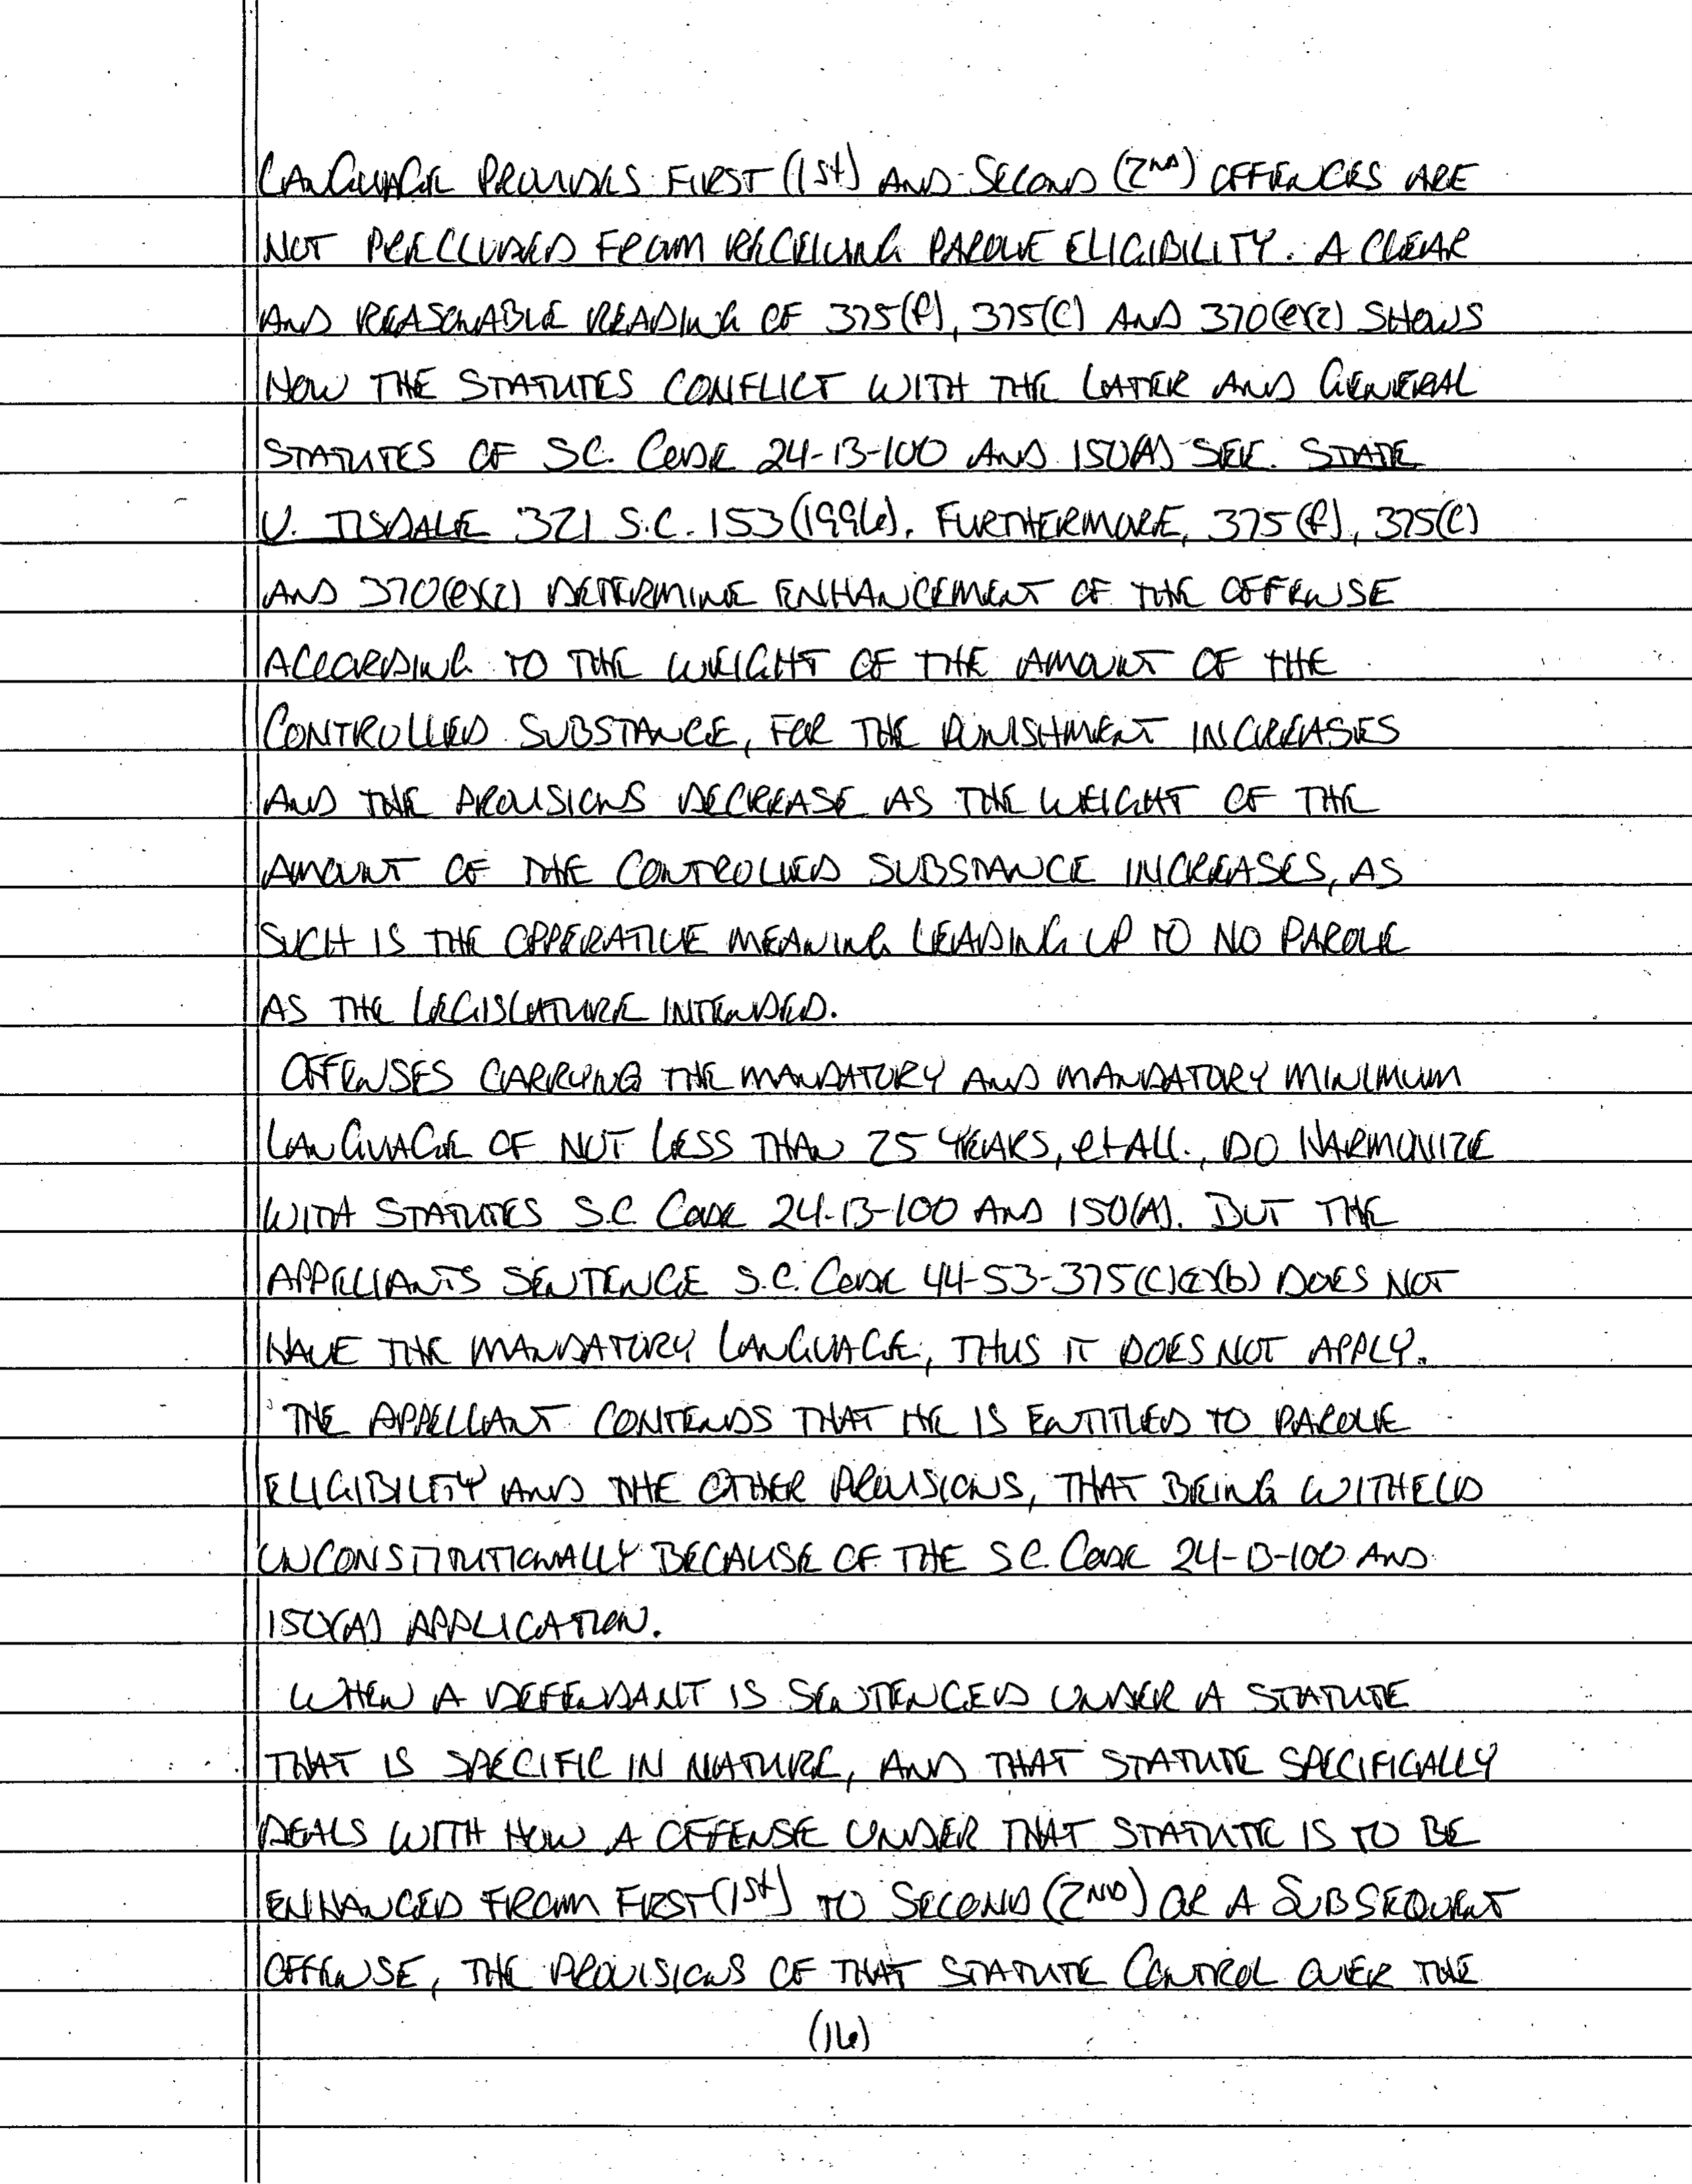 LANGUAGE PROVIDES FIRST (1st) AND SECOND (2ND) OFFENCES ARE
NOT PRECLUDED FROM RECEIVING PAROLE ELIGIBILITY. A CLEAR
AND REASONABLE READING OF 375(f), 375(C) AND 370(e)(2) SHOWS
HOW THE STATUTES CONFLICT WITH THE LATER AND GENERAL
STATUTES OF S.C. CODE 24-13-100 AND 150(A) SEE. STATE
V. TISDALE 321 S.C. 153 (1996). FURTHERMORE, 375(f), 375(C)
AND 370(e)(2) DETERMINE ENHANCEMENT OF THE OFFENSE
ACCORDING TO THE WEIGHT OF THE AMOUNT OF THE
CONTROLLED SUBSTANCE, FOR THE PUNISHMENT INCREASES
AND THE PROVISIONS DECREASE AS THE WEIGHT OF THE
AMOUNT OF THE CONTROLLED SUBSTANCE INCREASES, AS
SUCH IS THE OPPERATIVE MEANING LEADING UP TO NO PAROLE
AS THE LEGISLATURE INTENDED.
OFFENSES CARRYING THE MANDATORY AND MANDATORY MINIMUM
LANGUAGE OF NOT LESS THAN 25 YEARS, et ALL., DO HARMONIZE
WITH STATUTES S.C. CODE 24-13-100 AND 150(A). BUT THE
APPELLANTS SENTENCE S.C. CODE 44-53-375(C)(2)(b) DOES NOT
HAVE THE MANDATORY LANGUAGE, THUS IT DOES NOT APPLY.
THE APPELLANT CONTENDS THAT HE IS ENTITLED TO PAROLE
ELIGIBILITY AND THE OTHER PROVISIONS, THAT BEING WITHELD
UNCONSTITUTIONALLY BECAUSE OF THE S.C. CODE 24-13-100 AND
150(A) APPLICATION.
WHEN A DEFENDANT IS SENTENCED UNDER A STATUTE
THAT IS SPECIFIC IN NATURE, AND THAT STATUTE SPECIFICALLY
DEALS WITH HOW A OFFENSE UNDER THAT STATUTE IS TO BE
ENHANCED FROM FIRST (1st) TO SECOND (2ND) OR A SUBSEQUENT
OFFENSE, THE PROVISIONS OF THAT STATUTE CONTROL OVER THE
(16)